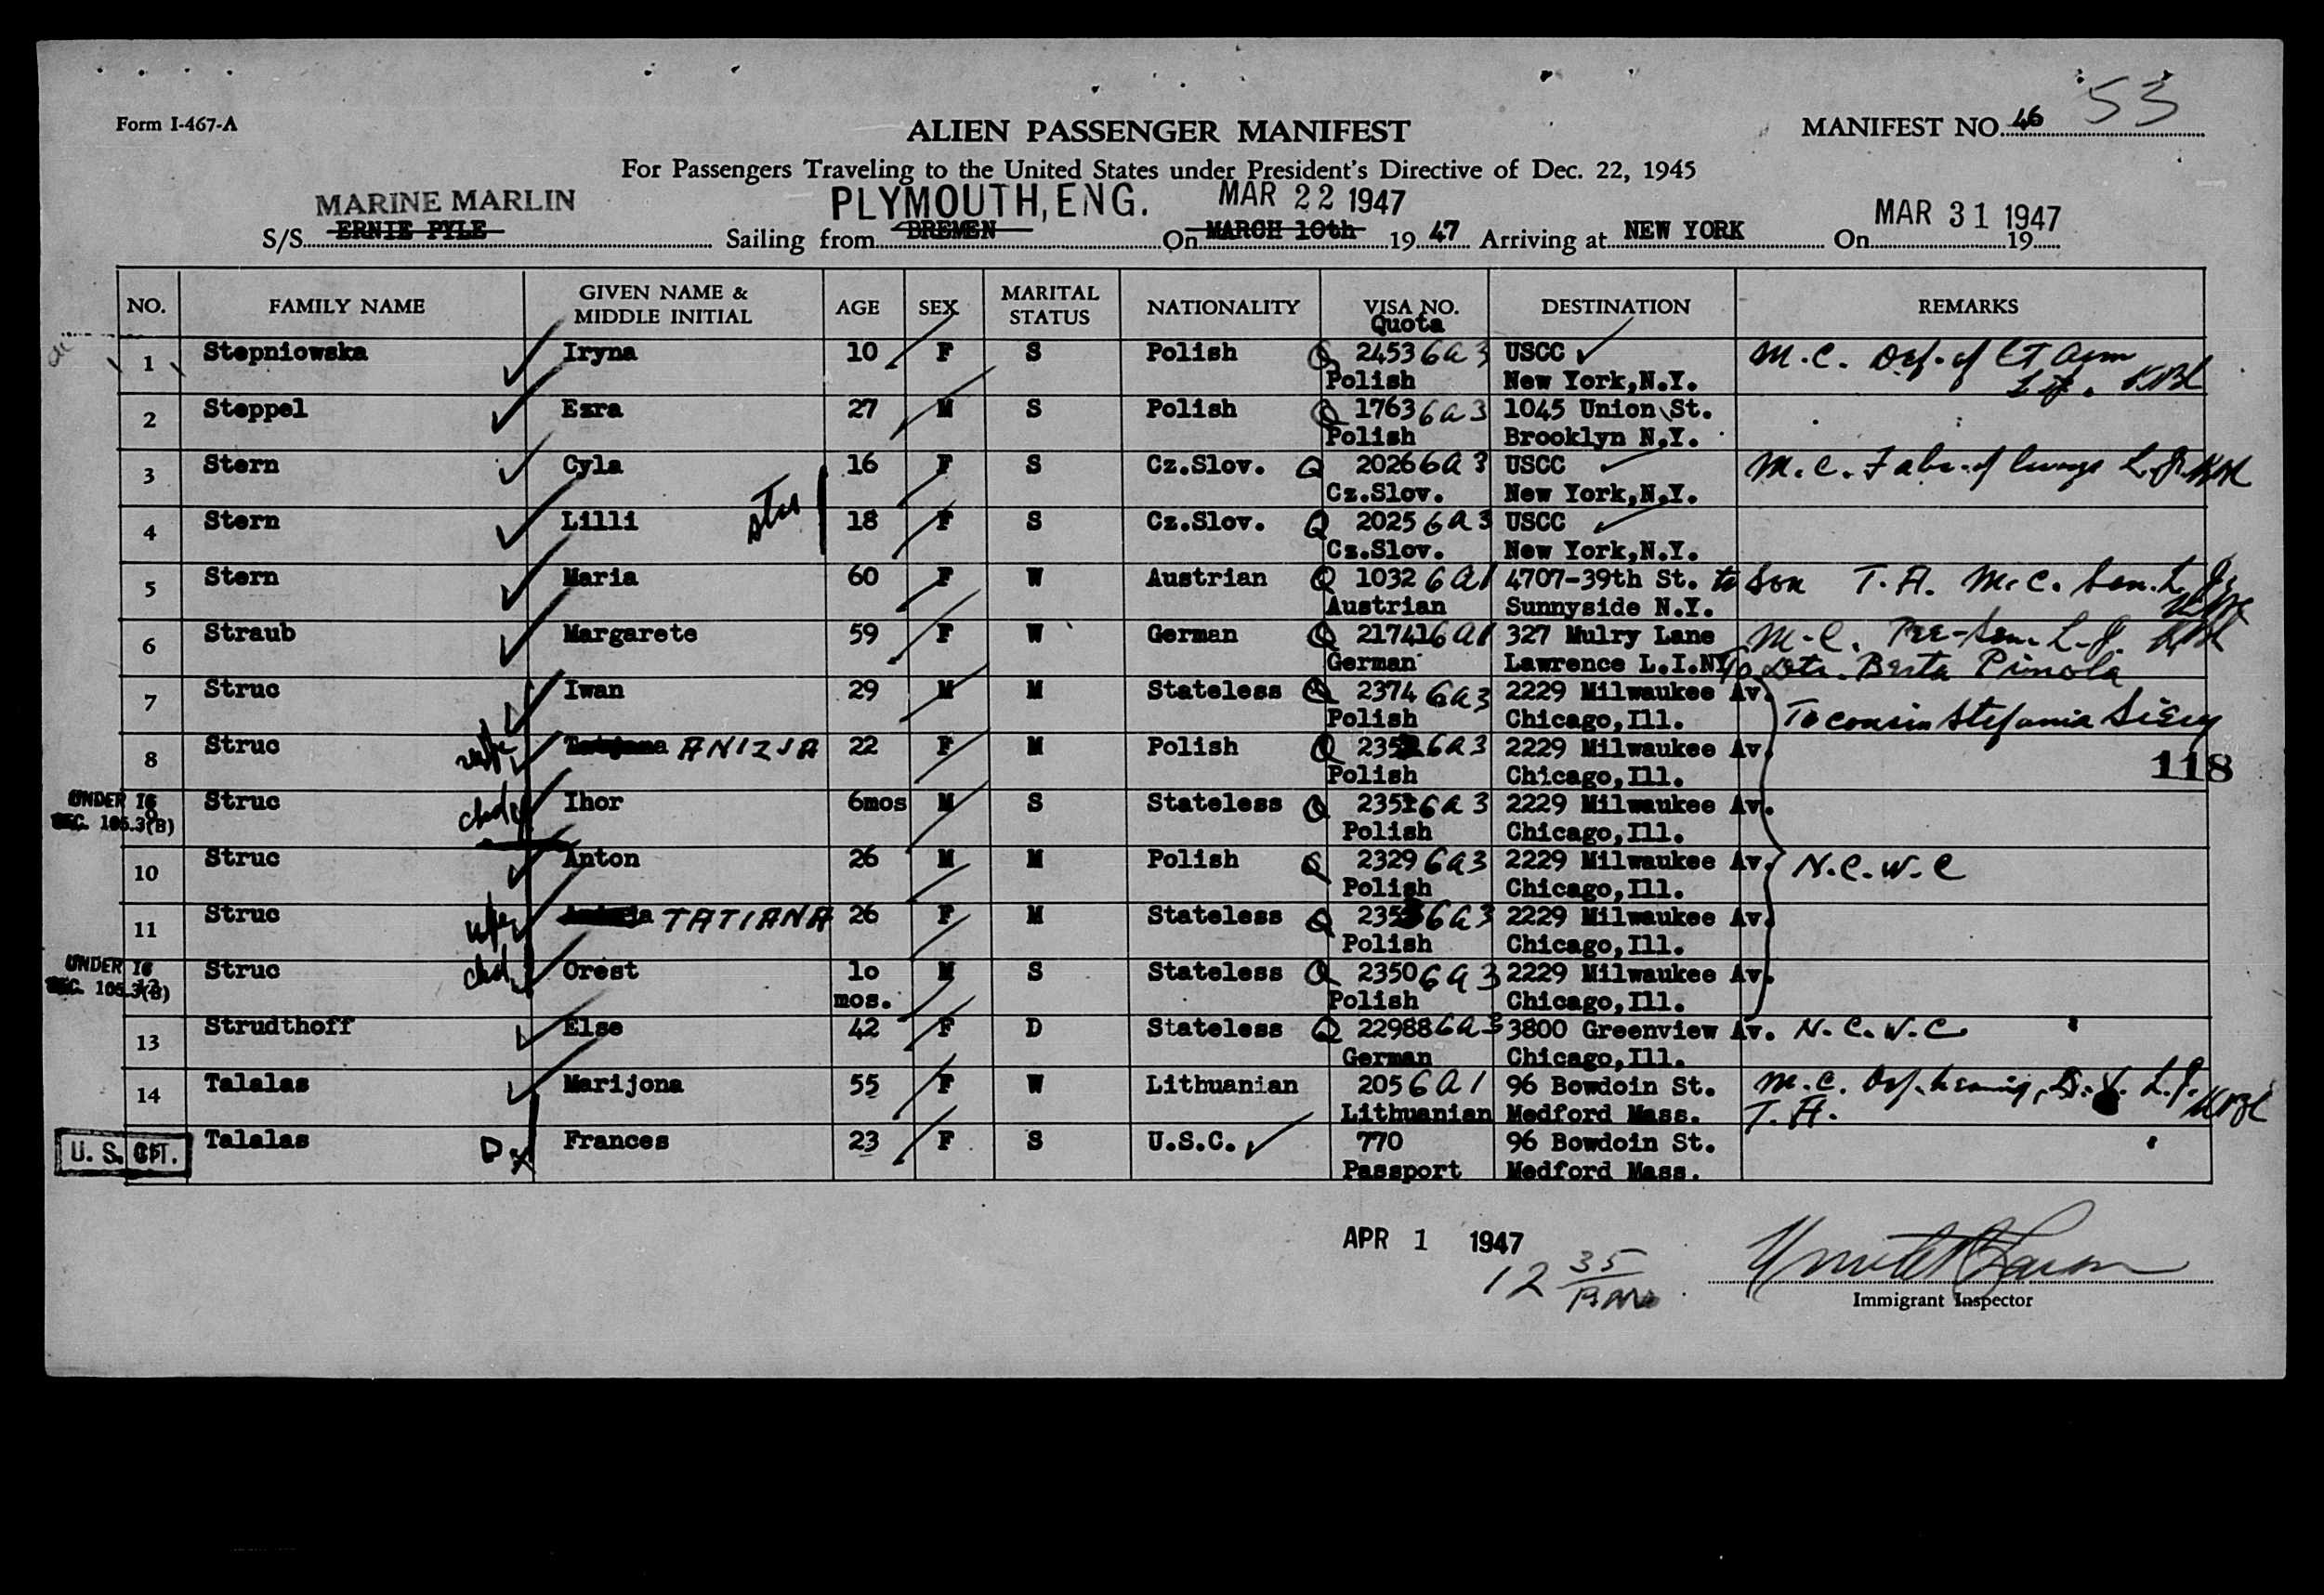 53
Form I-467-A
ALIEN PASSENGER MANIFEST
MANIFEST NO. 46
For Passengers Traveling to the United States under President's Directive of Dec. 22, 1945
MARINE MARLIN PLYMOUTH, ENG. MAR 22 1947 MAR 31 1947
S/S ERNIE PYLE Sailing from BREMEN On MARCH 10th 19 47 Arriving at NEW YORK On 19
NO. FAMILY NAME GIVEN NAME & MIDDLE INITIAL AGE SEX MARITAL STATUS NATIONALITY VISA NO. Quota DESTINATION REMARKS
1 Stepniowska Iryna 10 F S Polish Q 2453 6a3 USCC M.C. Def. of LT Arm
Polish New York,N.Y. KBL
2 Steppel Ezra 27 M S Polish Q 1763 6a3 1045 Union St.
Polish Brooklyn N.Y.
3 Stern Cyla 16 F S Cz.Slov. Q 2026 6a3 USCC M.C. of lungs
Cz.Slov. New York,N.Y.
4 Stern Lilli 18 F S Cz.Slov. Q 2025 6a3 USCC
Cz.Slov. New York,N.Y.
5 Stern Maria 60 F W Austrian Q 1032 6a1 4707-39th St. to Son T.A. M.C. Sen.
Austrian Sunnyside N.Y.
6 Straub Margarete 59 F W German Q 21741 6a1 327 Mulry Lane M.C. Pre-Sen. L.J.
German Lawrence L.I.NY To Dtr. Berta Pinola
7 Struc Iwan 29 M M Stateless Q 2374 6a3 2229 Milwaukee Av.
Polish Chicago,Ill. To cousin Stefania
8 Struc wife ANIZJA 22 F M Polish Q 2352 6a3 2229 Milwaukee Av.
Polish Chicago,Ill. 118
UNDER 16 SEC. 105.3(B) Struc chd Ihor 6mos M S Stateless Q 2351 6a3 2229 Milwaukee Av.
Polish Chicago,Ill.
10 Struc Anton 26 M M Polish Q 2329 6a3 2229 Milwaukee Av. N.C.W.C
Polish Chicago,Ill.
11 Struc wife TATIANA 26 F M Stateless Q 2353 6a3 2229 Milwaukee Av.
Polish Chicago,Ill.
UNDER 16 SEC. 105.3(B) Struc chd Orest 1o mos. M S Stateless Q 2350 6a3 2229 Milwaukee Av.
Polish Chicago,Ill.
13 Strudthoff Else 42 F D Stateless Q 22988 6a3 3800 Greenview Av. N.C.W.C
German Chicago,Ill.
14 Talalas Marijona 55 F W Lithuanian 205 6a1 96 Bowdoin St. M.C. Def. hearing, L.J.
Lithuanian Medford Mass. T.A.
U. S. CIT. Talalas Frances 23 F S U.S.C. 770 96 Bowdoin St.
Passport Medford Mass.
APR 1 1947
12 35
Immigrant Inspector